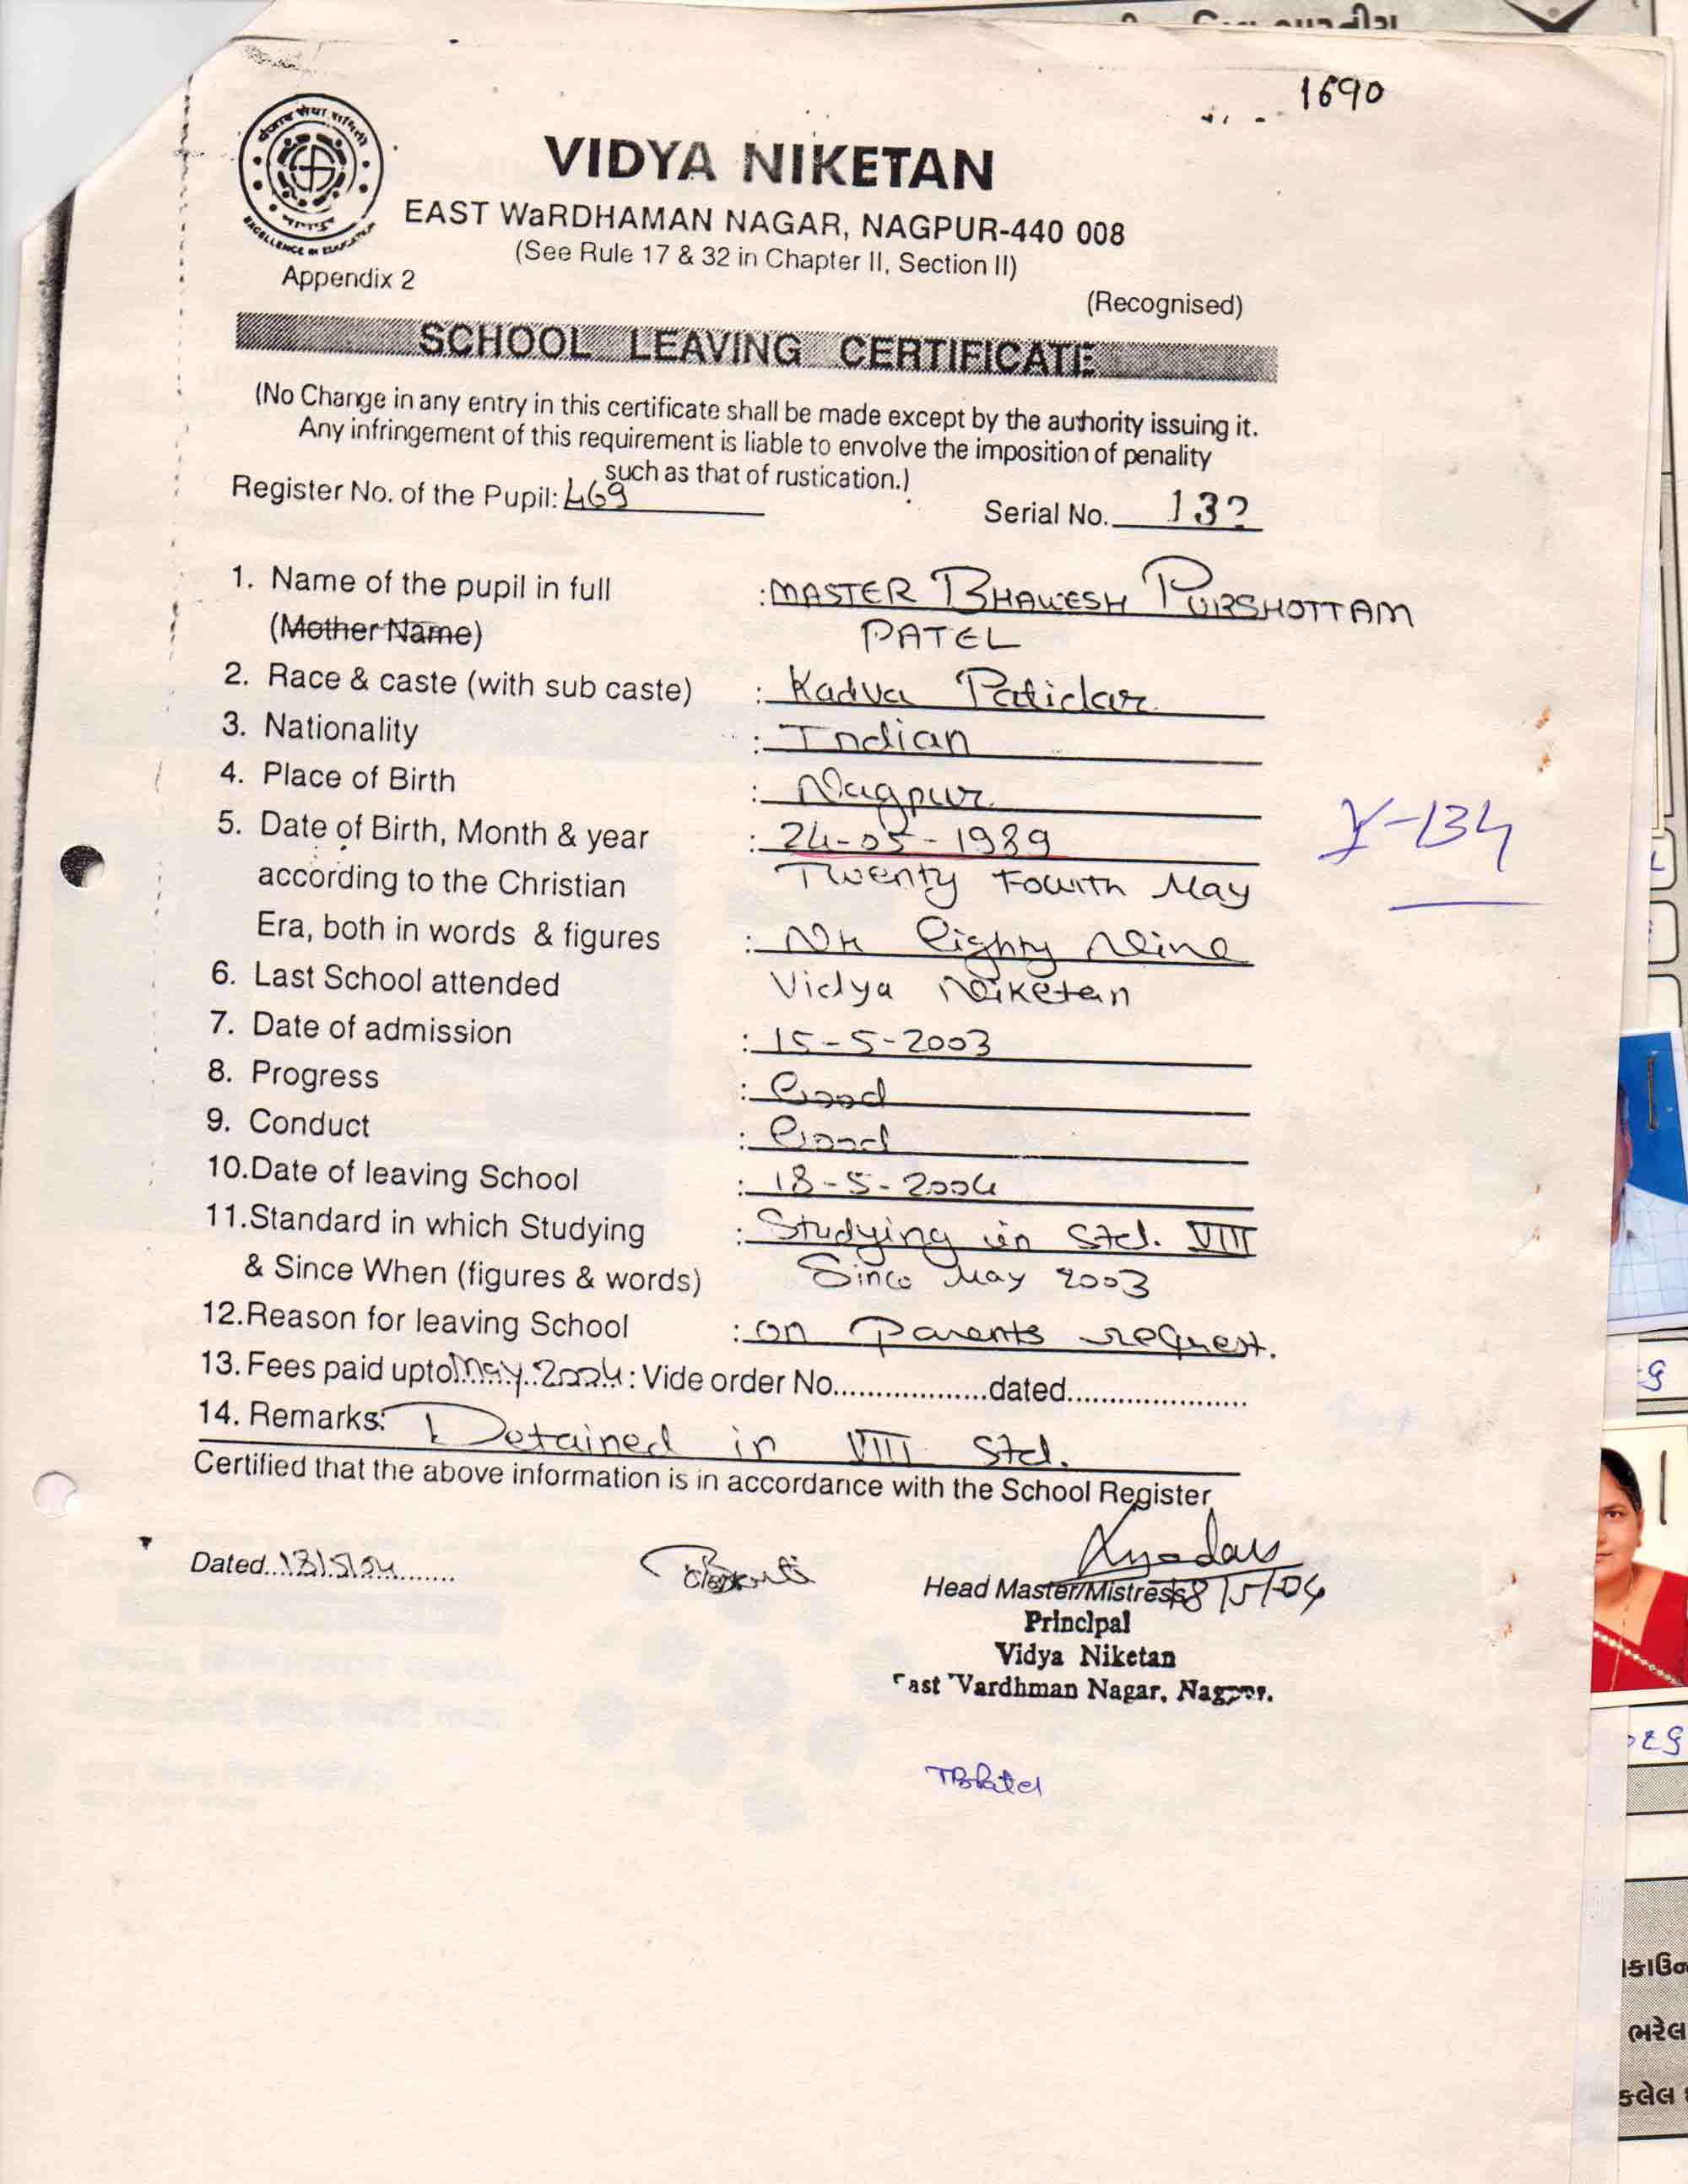 1690
पंजाब सेवा समिती
नागपुर
EXCELLENCE IN EDUCATION
VIDYA NIKETAN
EAST WaRDHAMAN NAGAR, NAGPUR-440 008
(See Rule 17 & 32 in Chapter II, Section II)
Appendix 2
(Recognised)
SCHOOL LEAVING CERTIFICATE
(No Change in any entry in this certificate shall be made except by the authority issuing it.
Any infringement of this requirement is liable to envolve the imposition of penality
such as that of rustication.)
Register No. of the Pupil: 469
Serial No. 132
1. Name of the pupil in full :MASTER BHAWESH PURSHOTTAM
(Mother Name) PATEL
2. Race & caste (with sub caste) : Kadva Patidar
3. Nationality : Indian
4. Place of Birth : Nagpur
5. Date of Birth, Month & year : 24-05-1989
according to the Christian Twenty Fourth May
Era, both in words & figures : Eighty Nine
6. Last School attended Vidya Niketan
7. Date of admission : 15-5-2003
8. Progress : Good
9. Conduct : Good
10.Date of leaving School : 18-5-2004
11.Standard in which Studying : Studying in Std. VIII
& Since When (figures & words) Since May 2003
12.Reason for leaving School : on Parents request.
13. Fees paid upto May 2004 : Vide order No...................dated......................
14. Remarks: Detained in VIII Std.
Certified that the above information is in accordance with the School Register
Dated..18/5/04..........
Clerk
Head Master/Mistress 18/5/04
Principal
Vidya Niketan
ast Vardhman Nagar, Nagpur.
TBPatel
-134
ભરેલ